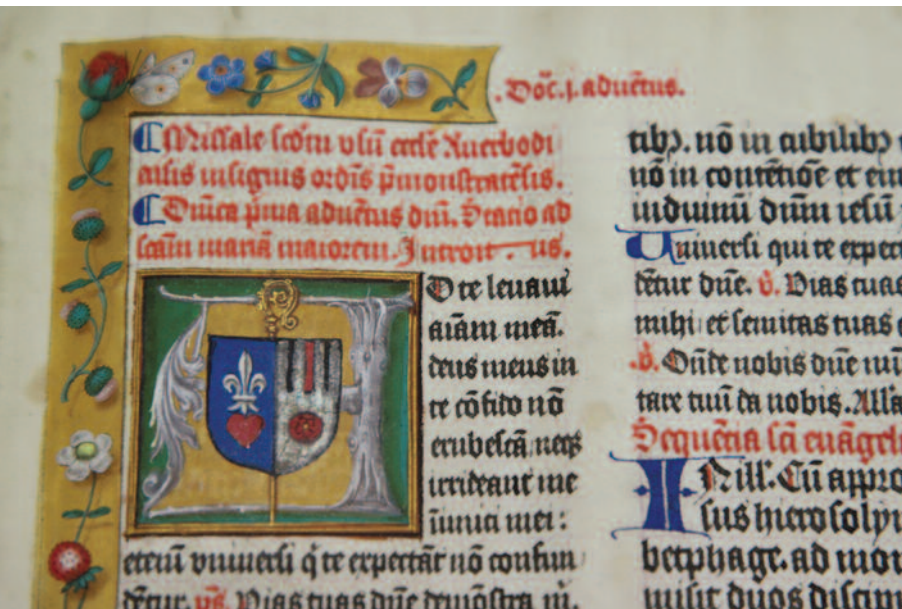 . Dōc. j. aduētus.
Missale scdm vsū ecclē Auerbodi
ēsis insignis ordīs p̄monstratēsis.
Dnīca p̄ma aduētus dnī. Statio ad
scām mariā maiorem. Introit us.
D te leuaui
aīam meā.
deus meus in
te cōfido nō
erubescā neqȝ
irrideant me
īimici mei :
etenī vniuersi q̇ te expectāt nō confun
dētur. v̄s. Vias tuas dn̄e demōstra m̄.
tibȝ. nō in cubilibȝ
nō in contētiōe et em
induimī dn̄m iesū
Vniuersi qui te expect
dētur dn̄e. v̄. Vias tuas
mihi et semitas tuas
.v̄. Ostēde nobis dn̄e mi
tare tuū da nobis. Alla
Sequētia sci euāgel
IN ill'. Cū appro
sus hierosolym
betphage. ad mon
misit duos discip